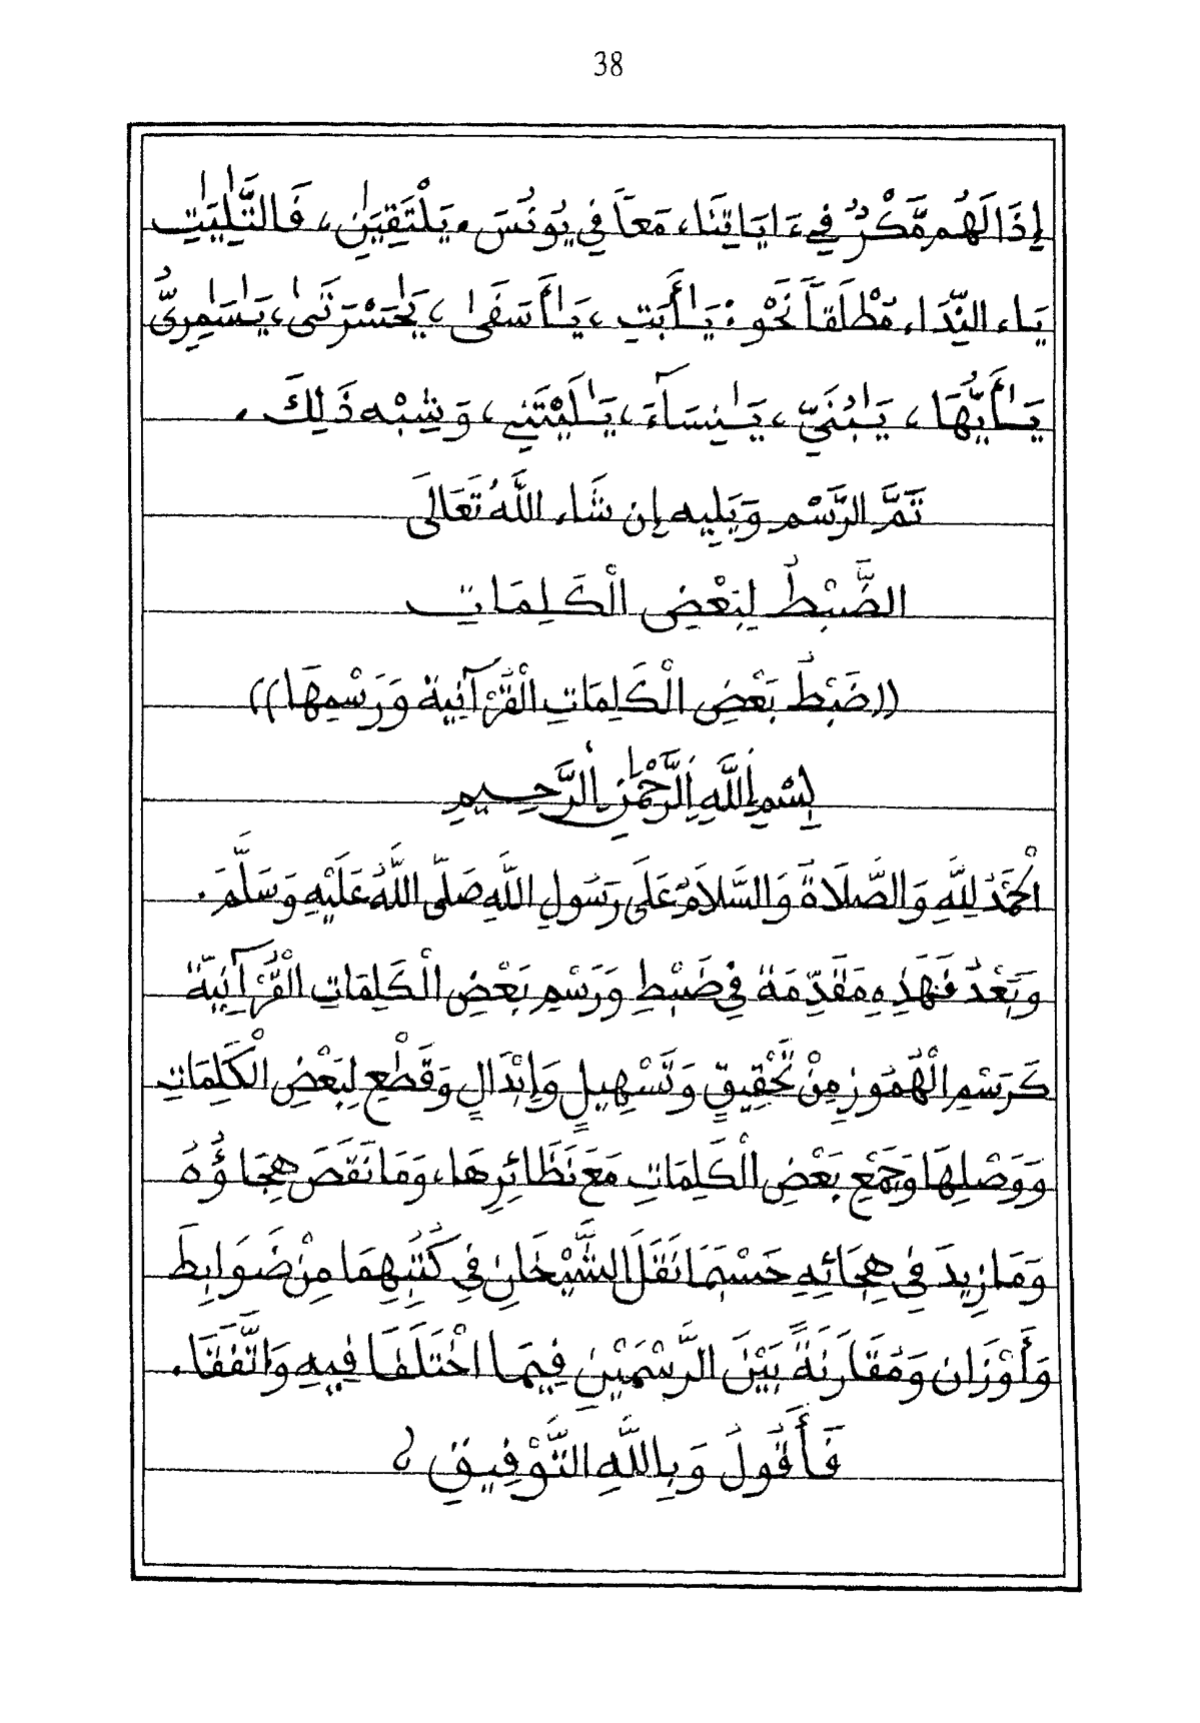 38
إِذَا لَهُم مَّكْرٌ فِي ءَايَاتِنَا، مَعاً فِي يُونُسَ، يَلْتَقِيَٰنِ، فَالتَّٰلِيَٰتِ
يَاءِ النِّدَاءِ مُطْلَقاً نَحْوُ: يَٰأَبَتِ، يَٰأَسَفَىٰ، يَٰحَسْرَتَىٰ، يَٰسَٰمِرِيُّ
يَٰأَيُّهَا، يَٰبُنَيِّ، يَٰنِسَآءَ، يَٰلَيْتَنِي، وَشِبْهِ ذَلِكَ.
تَمَّ الرَّسْمُ وَيَلِيهِ إِن شَاءَ اللَّهُ تَعَالَى
الضَّبْطُ لِبَعْضِ الْكَلِمَاتِ
((ضَبْطُ بَعْضِ الْكَلِمَاتِ الْقُرْآنِيةِ وَرَسْمِهَا))
بِسْمِ اللَّهِ الرَّحْمَٰنِ الرَّحِيمِ
الْحَمْدُ لِلَّهِ وَالصَّلَاةُ وَالسَّلَامُ عَلَى رَسُولِ اللَّهِ صَلَّى اللَّهُ عَلَيْهِ وَسَلَّمَ.
وَبَعْدُ فَهَذِهِ مُقَدِّمَةٌ فِي ضَبْطِ وَرَسْمِ بَعْضِ الْكَلِمَاتِ الْقُرْآنِيَّةِ
كَرَسْمِ الْهُمُوزِ مِنْ تَحْقِيقٍ وَتَسْهِيلٍ وَإِبْدَالٍ وَقَطْعِ لِبَعْضِ الْكَلِمَاتِ
وَوَصْلِهَا وَجَمْعِ بَعْضِ الْكَلِمَاتِ مَعَ نَظَائِرِهَا، وَمَا نَقَصَ هِجَاؤُهُ
وَمَا زِيدَ فِي هِجَائِهِ حَسْبَمَا نَقَلَ الشَّيْخَانِ فِي كُتُبِهِمَا مِنْ ضَوَابِطَ
وَأَوْزَانٍ وَمُقَارَنَةً بَيْنَ الرَّسْمَيْنِ فِيمَا اخْتَلَفَا فِيهِ وَاتَّفَقَا.
فَأَقُولُ وَبِاللَّهِ التَّوْفِيقِ؟